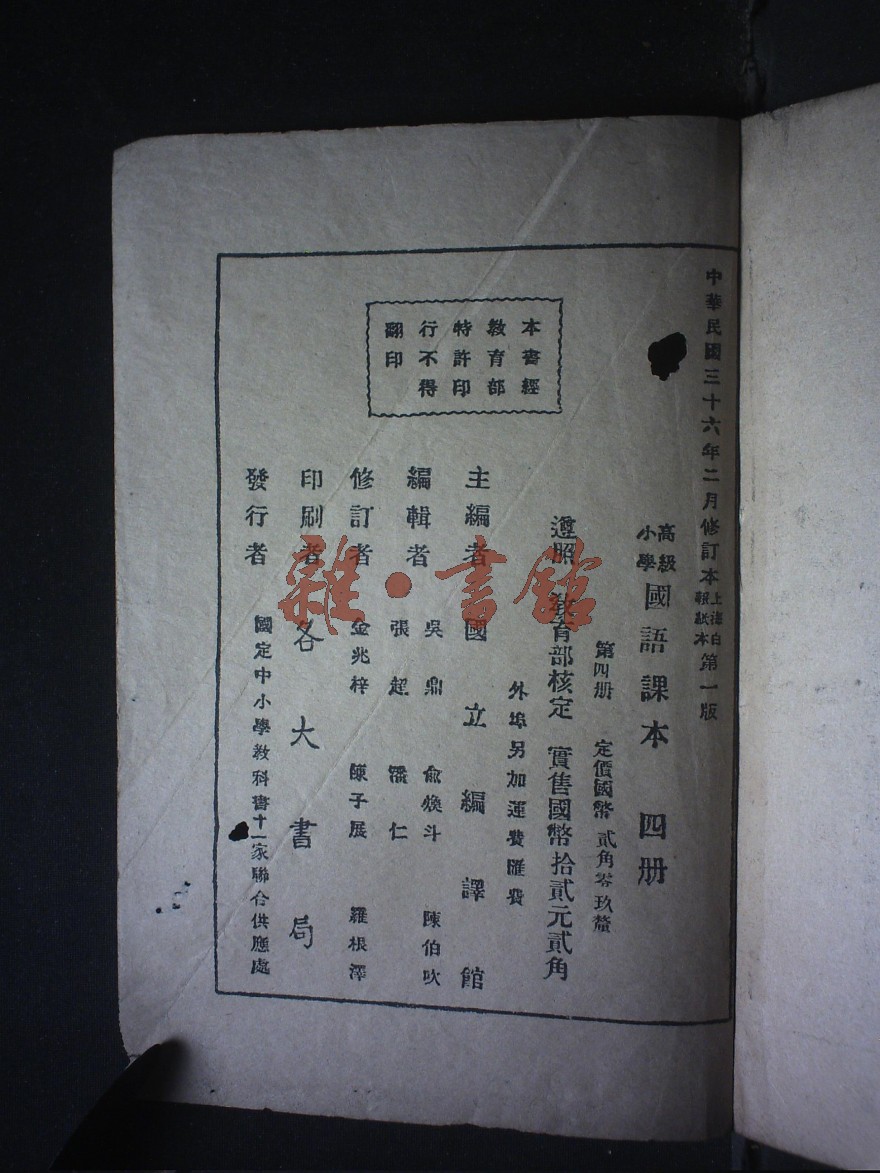 中華民國三十六年二月修訂本 上海白報紙本 第一版
高級小學 國語課本 四册
第四册 定價國幣貳角零玖釐
遵照教育部核定 實售國幣拾貳元貳角
外埠另加運費匯費
本書經
教育部
特許印
行不得
翻印
主編者 國立編譯館
編輯者 吳鼎 俞煥斗 陳伯吹
張超 潘仁
修訂者 金兆梓 陳子展 羅根澤
印刷者 各大書局
發行者 國定中小學教科書十一家聯合供應處
雜·書館